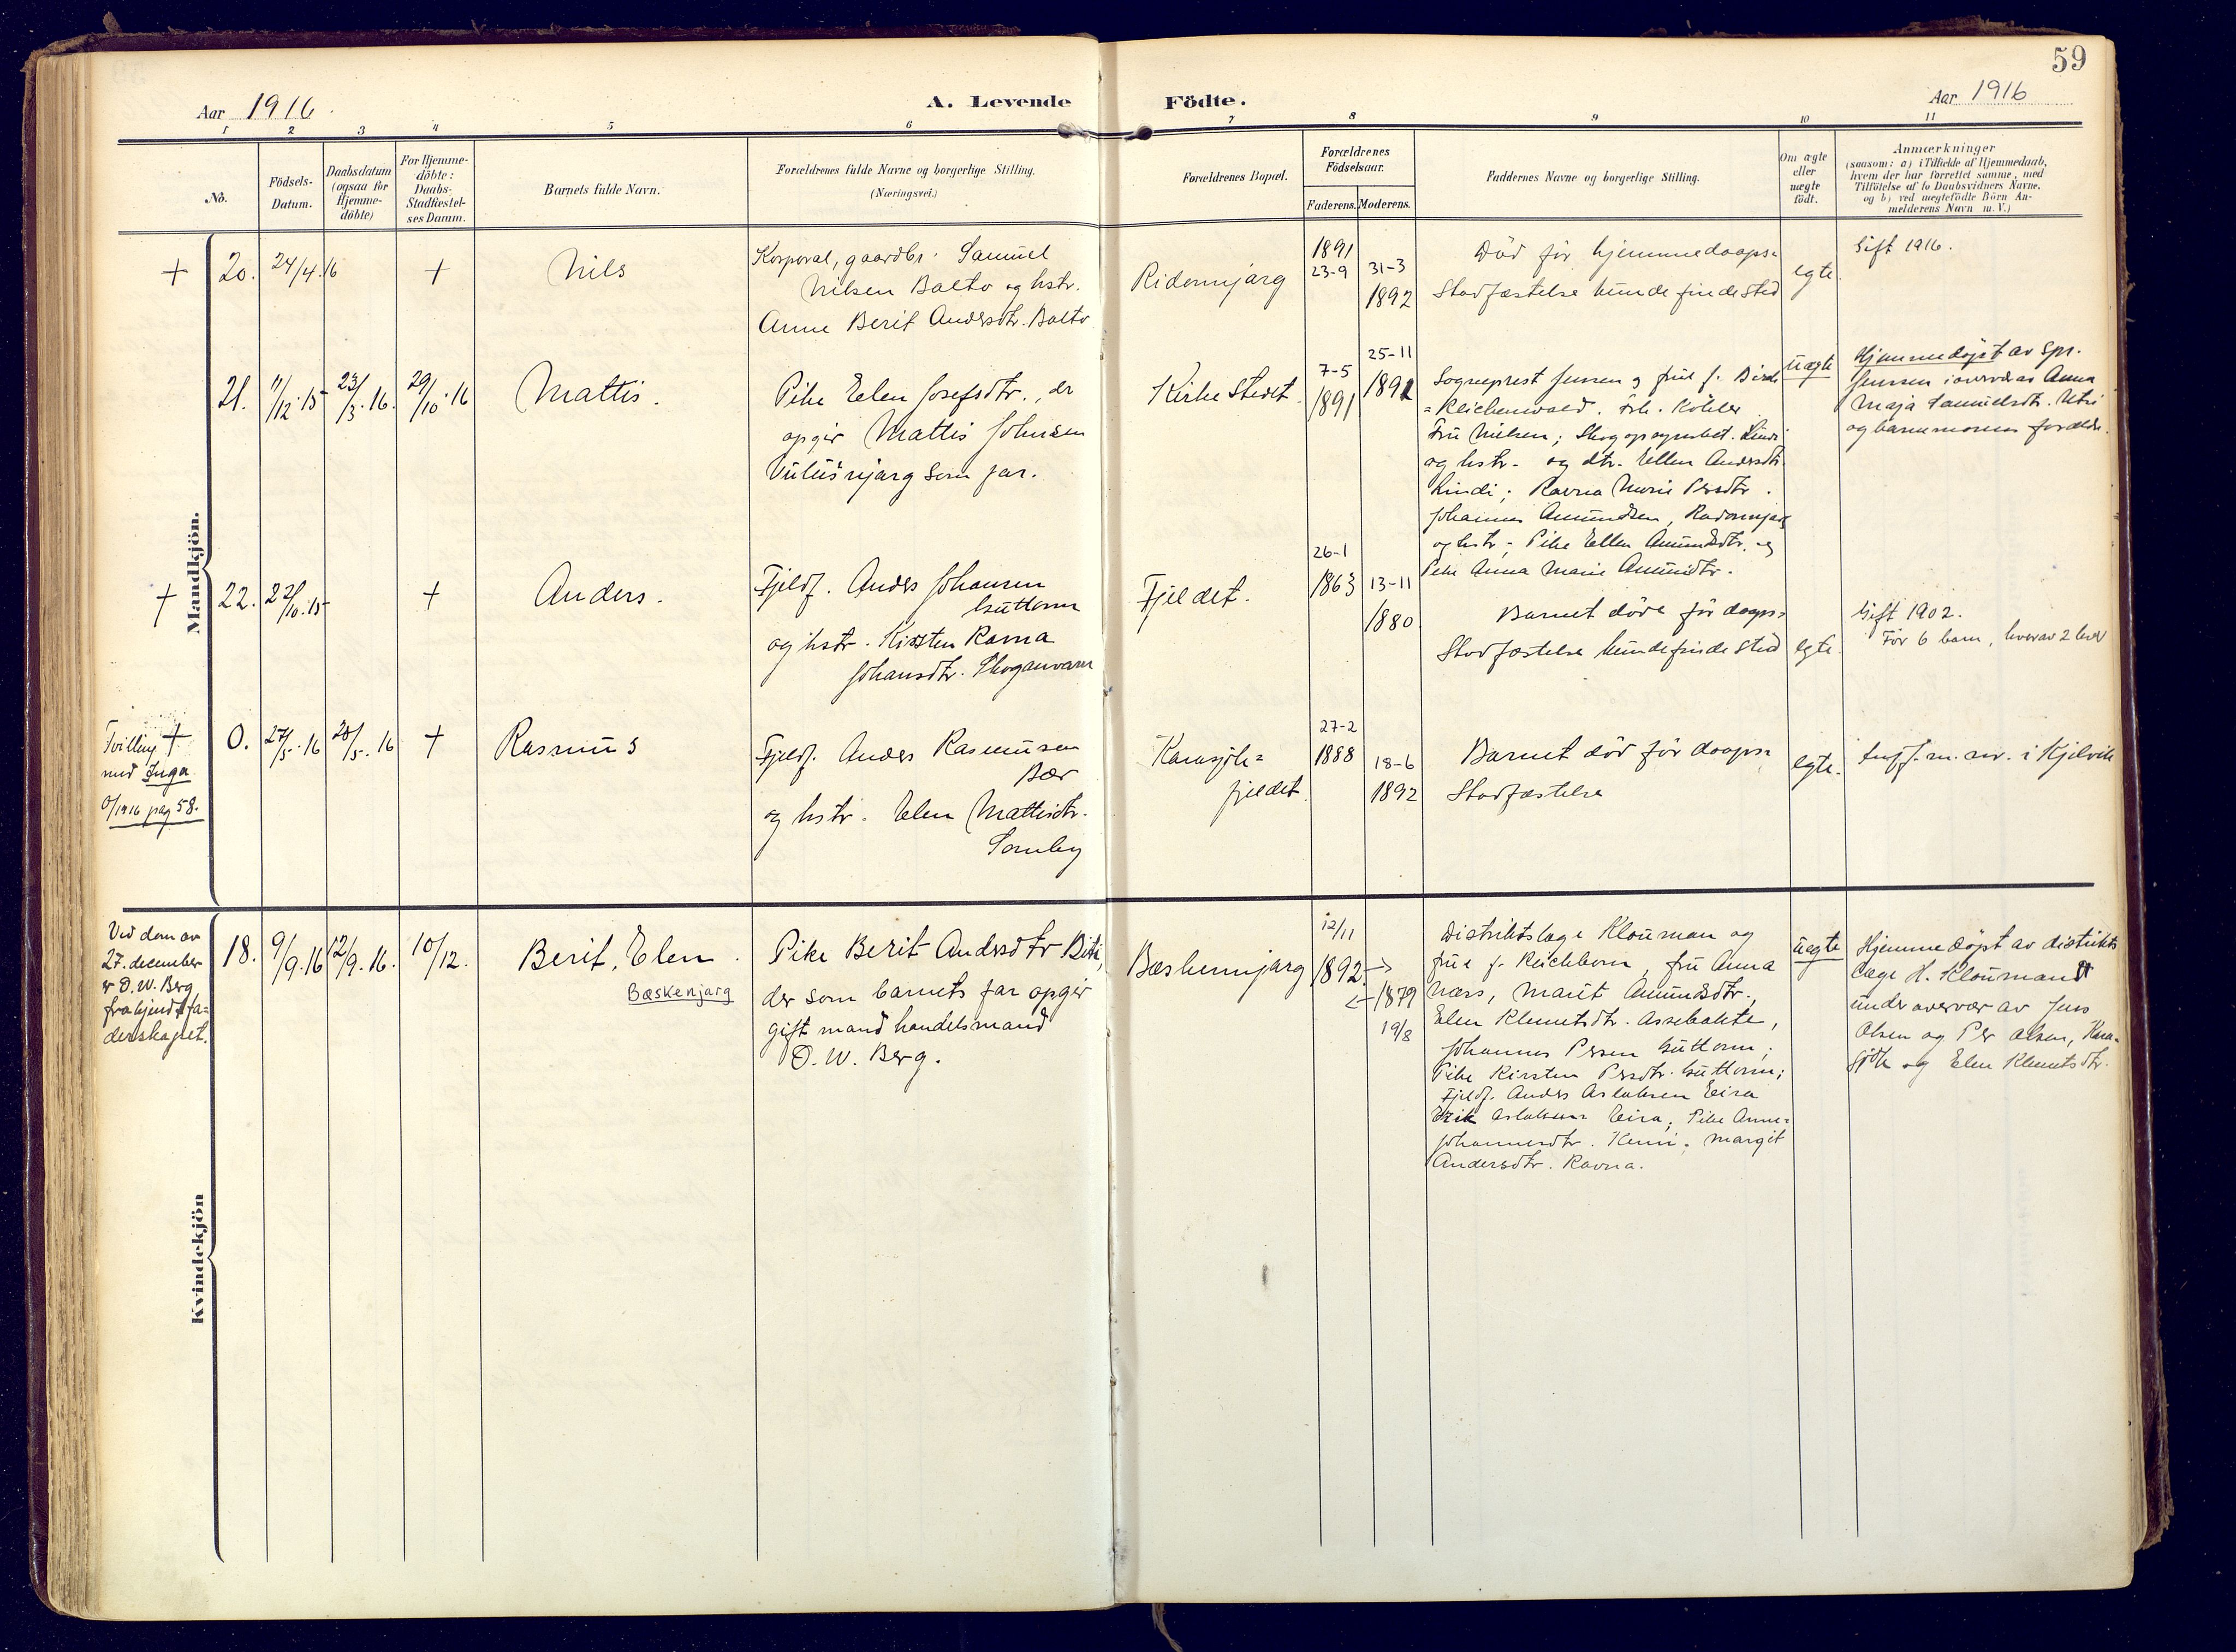 59
Aar 1916.
A. Levende
Födte.
Aar 1916
1 2 3 4 5 6 7 8 9 10 11
No.
Födsels-
Datum.
Daabsdatum
(ogsaa for
Hjemme-
döbte)
For Hjemme-
döbte:
Daabs-
Stadfæstel-
ses Datum.
Barnets fulde Navn.
Forældrenes fulde Navne og borgerlige Stilling.
(Næringsvei.)
Forældrenes Bopæl.
Forældrenes
Födselsaar.
Faderens. Moderens.
Faddernes Navne og borgerlige Stilling.
Om ægte
eller
uægte
födt.
Anmærkninger
(saasom: a) i Tilfælde af Hjemmedaab,
hvem der har forrettet samme, med
Tilföielse af to Daabsvidners Navne,
og b) ved uægtefödte Börn An-
melderens Navn m. V.)
Mandkjön.
+ 20. 24/4.16 + Nils
Korporal, gaardbr. Samuel
Nilsen Balto og hstr.
Anne Berit Andersdtr. Balto
Ridomnjarg
1891
23-9
31-3
1892
Död för hjemmedaaps=
Stadfæstelse kunde finde sted
egte.
Gift 1916.
21. 11/12.15 23/3.16. 29/10.16 Mattis.
Pike Elen Josefsdtr., der
opgir Mattis Johnsen
Vulusnjarg som far.
Kirkestedet.
7-5
1891
25-11
1892
Sogneprest Jenssen og frue f.
= Reichenwald. Frk. Köhler
Fru Nielsen; Skogopsynsbet.
og hstr. og dtr. Ellen Andersdtr.
Lindi; Ravna Marie Persdtr.
Johannes Amundsen,
og hstr; Pike Ellen Amundsdtr. og
Pike Anna Marie Amundsdtr.
uægte
Hjemmedöpt av spr.
Jenssen i overvær av Anna
Maja Samuelsdtr. Utsi
og barnemorens forældre.
+ 22. 22/10.15 + Anders.
Fjeldf. Anders Johansen
Guttorm
og hstr. Kirsten Ravna
Johansdtr. Skoganvarre
Fjeldet.
26-1
1863
13-11
1880
Barnet döde för daaps=
Stadfæstelse kunde finde sted
egte.
Gift 1902.
Før 6 barn, hvorav 2 lever
Tvilling +
med Inga
0/1916 pag 58.
0. 27/5.16 28/5.16 + Rasmus
Fjeldf. Anders Rasmusen
Bær
og hstr. Elen Mattisdtr.
Somby
Karasjok=
fjeldet.
27-2
1888
18-6
1892
Barnet död för daaps=
Stadfæstelse
egte.
i Kjelvik
Kvindekjön
Ved dom av
27. december
er O. W. Berg
frakjendt fa=
derskapet.
18. 9/9.16 12/9.16. 10/12. Berit, Elen.
Bæskenjarg
Pike Berit Andersdtr Biti,
der som barnets far opgir
gift mand handelsmand
O. W. Berg.
Bæskennjarg
12/11
1892 →
← 1879
19/8
Distriktslæge Klouman og
frue f. Reichborn, fru Anna
Næss, Marit Amundsdtr.,
Elen Klemetsdtr. Assebakte,
Johannes Persen Guttorm;
Pike Kirsten Persdtr. Guttorm;
Fjeldf. Anders Aslaksen Eira
Erik Aslaksen Eira; Pike Anne=
Johannesdtr. Kemi; Margit
Andersdtr. Ravna.
uegte
Hjemmedöpt av distrikts
læge H. Klouman
under overvær av Jens
Olsen og Per Olsen, Kara=
sjok og Elen Klemetsdtr.